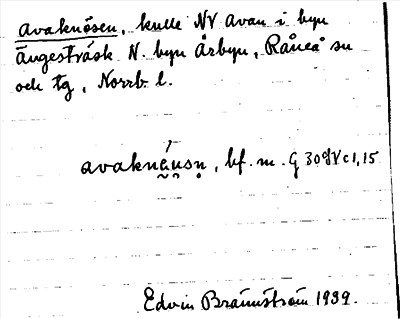 Avaknösen, kulle NV Avan i byn
Ängesträsk N. byn Årbyn, Råneå sn
och tg, Norrb. l.
avaknäusn, bf. m. G 30 c1,15
Edvin Brännström 1939.